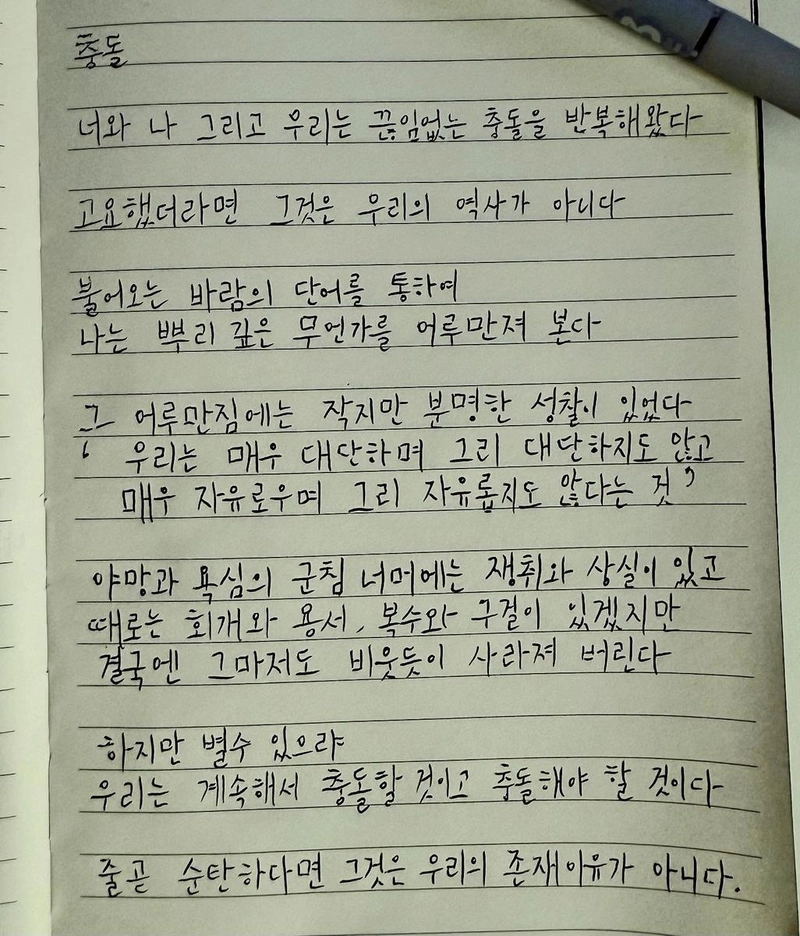 충돌
너와 나 그리고 우리는 끊임없는 충돌을 반복해왔다
고요했더라면 그것은 우리의 역사가 아니다
불어오는 바람의 단어를 통하여
나는 뿌리 깊은 무언가를 어루만져 본다
그 어루만짐에는 작지만 분명한 성찰이 있었다
‘ 우리는 매우 대단하며 그리 대단하지도 않고
매우 자유로우며 그리 자유롭지도 않다는 것 ’
야망과 욕심의 군침 너머에는 쟁취와 상실이 있고
때로는 회개와 용서, 복수와 구걸이 있겠지만
결국엔 그마저도 비웃듯이 사라져 버린다
하지만 별수 있으랴
우리는 계속해서 충돌할 것이고 충돌해야 할 것이다
줄곧 순탄하다면 그것은 우리의 존재이유가 아니다.